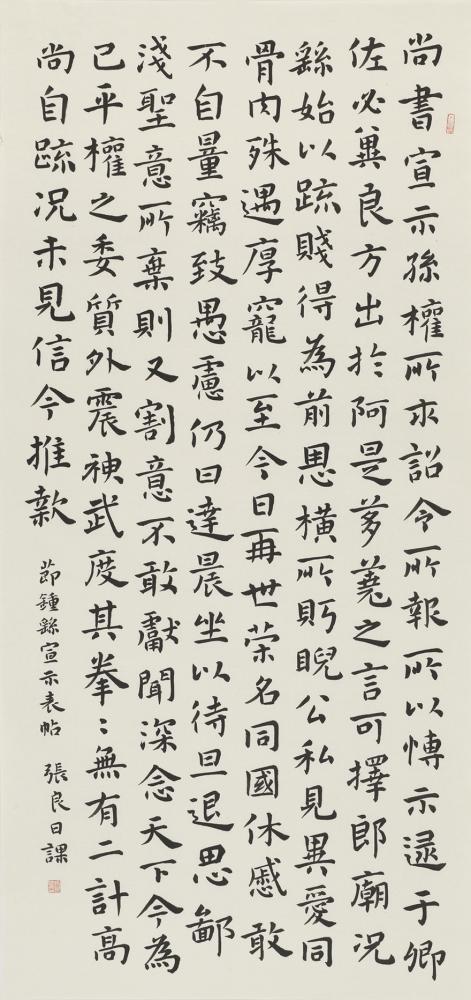 尚書宣示孫權所求詔令所報所以博示逮于卿
佐必冀良方出於阿是芻蕘之言可擇郎廟況
繇始以疏賤得為前恩橫所眄睨公私見異愛同
骨肉殊遇厚寵以至今日再世荣名同國休慼敢
不自量竊致愚慮仍日達晨坐以待旦退思鄙
淺聖意所棄則又割意不敢獻聞深念天下今為
已平權之委質外震神武度其拳〻無有二計高
尚自疏况未見信今推款
節鍾繇宣示表帖 張良日課